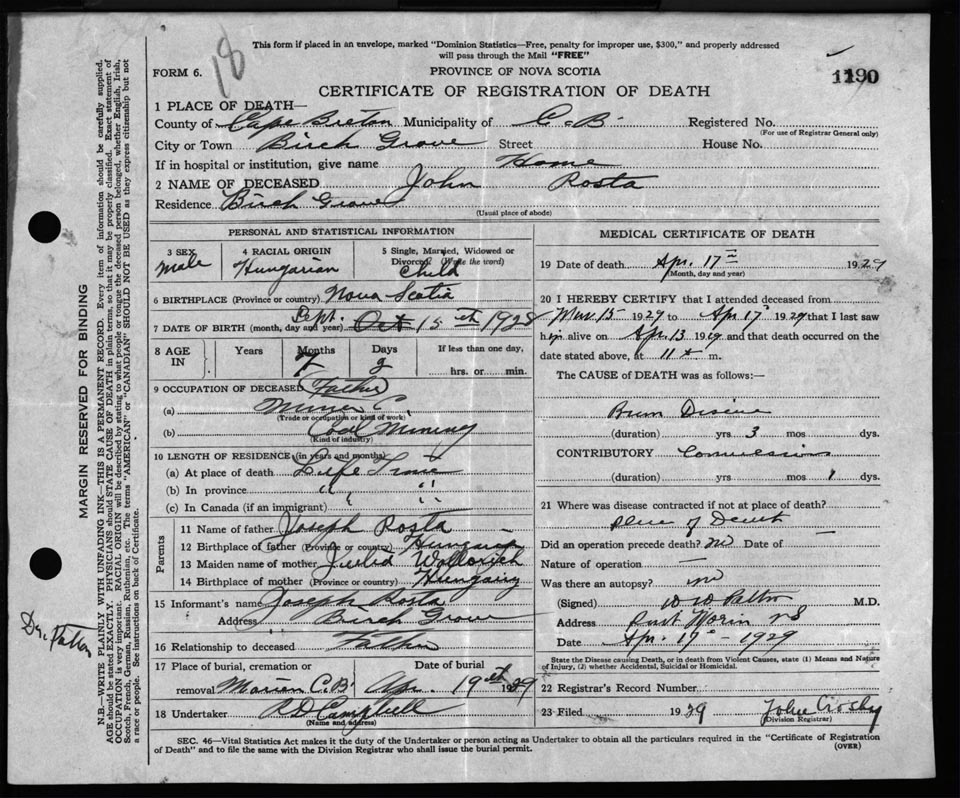 18
This form if placed in an envelope, marked "Dominion Statistics—Free, penalty for improper use, $300," and properly addressed
will pass through the Mail "FREE"
FORM 6.
PROVINCE OF NOVA SCOTIA
1190
CERTIFICATE OF REGISTRATION OF DEATH
1 PLACE OF DEATH—
County of Cape Breton Municipality of C.B. Registered No.
(For use of Registrar General only)
City or Town Birch Grove Street House No.
If in hospital or institution, give name Home
2 NAME OF DECEASED John Rosta
Residence Birch Grove
(Usual place of abode)
PERSONAL AND STATISTICAL INFORMATION
3 SEX Male
4 RACIAL ORIGIN Hungarian
5 Single, Married, Widowed or Divorced (Write the word) Child
6 BIRTHPLACE (Province or country) Nova Scotia
7 DATE OF BIRTH (month, day and year) Sept. Oct 15th 1928
8 AGE IN
Years Months Days If less than one day,
7 2 hrs. or min.
9 OCCUPATION OF DECEASED Father
(a) Miner
(Trade or occupation or kind of work)
(b) Coal Mining
(Kind of industry)
10 LENGTH OF RESIDENCE (in years and months)
(a) At place of death Life Time
(b) In province " "
(c) In Canada (if an immigrant)
Parents
11 Name of father Joseph Rosta
12 Birthplace of father (Province or country) Hungary
13 Maiden name of mother Julia
14 Birthplace of mother (Province or country) Hungary
15 Informant's name Joseph Rosta
Address Birch Grove
16 Relationship to deceased Father
17 Place of burial, cremation or removal Marion C.B. Date of burial Apr. 19th 1929
18 Undertaker A D Campbell
(Name and address)
MEDICAL CERTIFICATE OF DEATH
19 Date of death Apr. 17th 1929
(Month, day and year)
20 I HEREBY CERTIFY that I attended deceased from
Mar. 15 1929 to Apr 17 1929 that I last saw
him alive on Apr 13 19 and that death occurred on the
date stated above, at 11 m.
The CAUSE of DEATH was as follows:—
Disease
(duration) yrs 3 mos dys.
CONTRIBUTORY Convulsions
(duration) yrs mos 1 dys.
21 Where was disease contracted if not at place of death?
Place of Death
Did an operation precede death? no Date of —
Nature of operation —
Was there an autopsy? no
(Signed) W W Patton M.D.
Address Port Morien NS
Date Apr. 17 - 1929
State the Disease causing Death, or in death from Violent Causes, state (1) Means and Nature
of Injury, (2) whether Accidental, Suicidal or Homicidal.
22 Registrar's Record Number
23 Filed 1929 John Crosby
(Division Registrar)
SEC. 46—Vital Statistics Act makes it the duty of the Undertaker or person acting as Undertaker to obtain all the particulars required in the "Certificate of Registration
of Death" and to file the same with the Division Registrar who shall issue the burial permit.
(OVER)
MARGIN RESERVED FOR BINDING
N.B.—WRITE PLAINLY WITH UNFADING INK—THIS IS A PERMANENT RECORD. Every item of information should be carefully supplied.
AGE should be stated EXACTLY. PHYSICIANS should STATE CAUSE OF DEATH in plain terms, so that it may be properly classified. Exact statement of
OCCUPATION is very important. RACIAL ORIGIN will be described by stating to what people or tongue the deceased person belonged, whether English, Irish,
Scotch, French, German, Russian, Ruthenian, etc. The terms "AMERICAN" or "CANADIAN" SHOULD NOT BE USED as they express citizenship but not
a race or people. See instructions on back of Certificate.
Dr. Patton